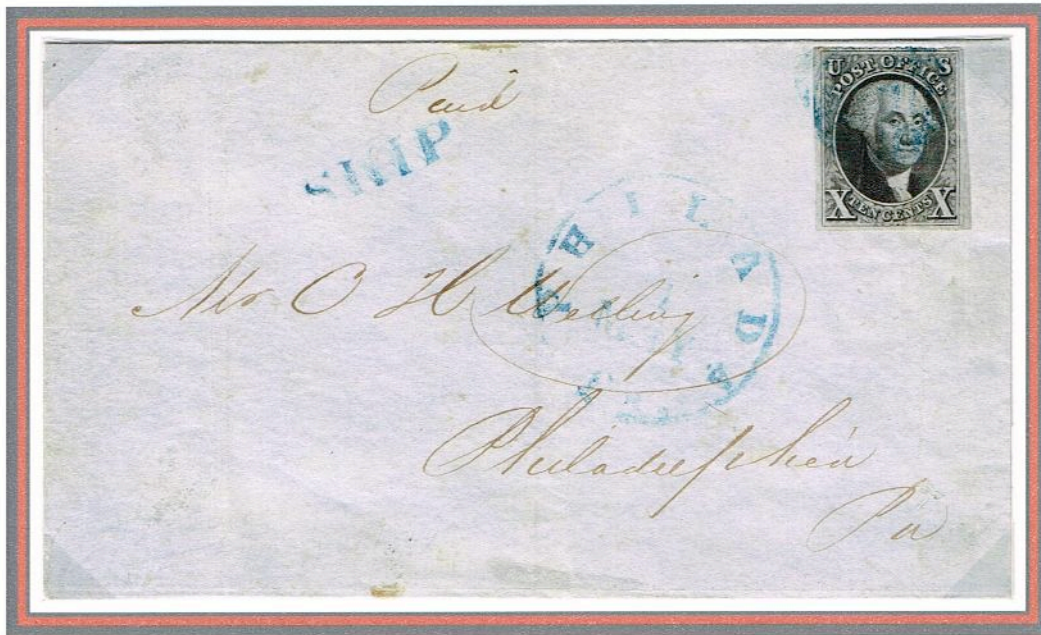 Paid
SHIP
U S
POST OFFICE
X TEN CENTS X
PHILADE
Mr C H Welling
Philadelphia
Pa